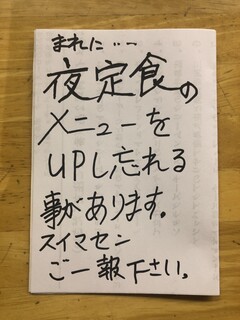 まれに‥
夜定食の
メニューを
UPし忘れる
事があります。
スイマセン
ご一報下さい。